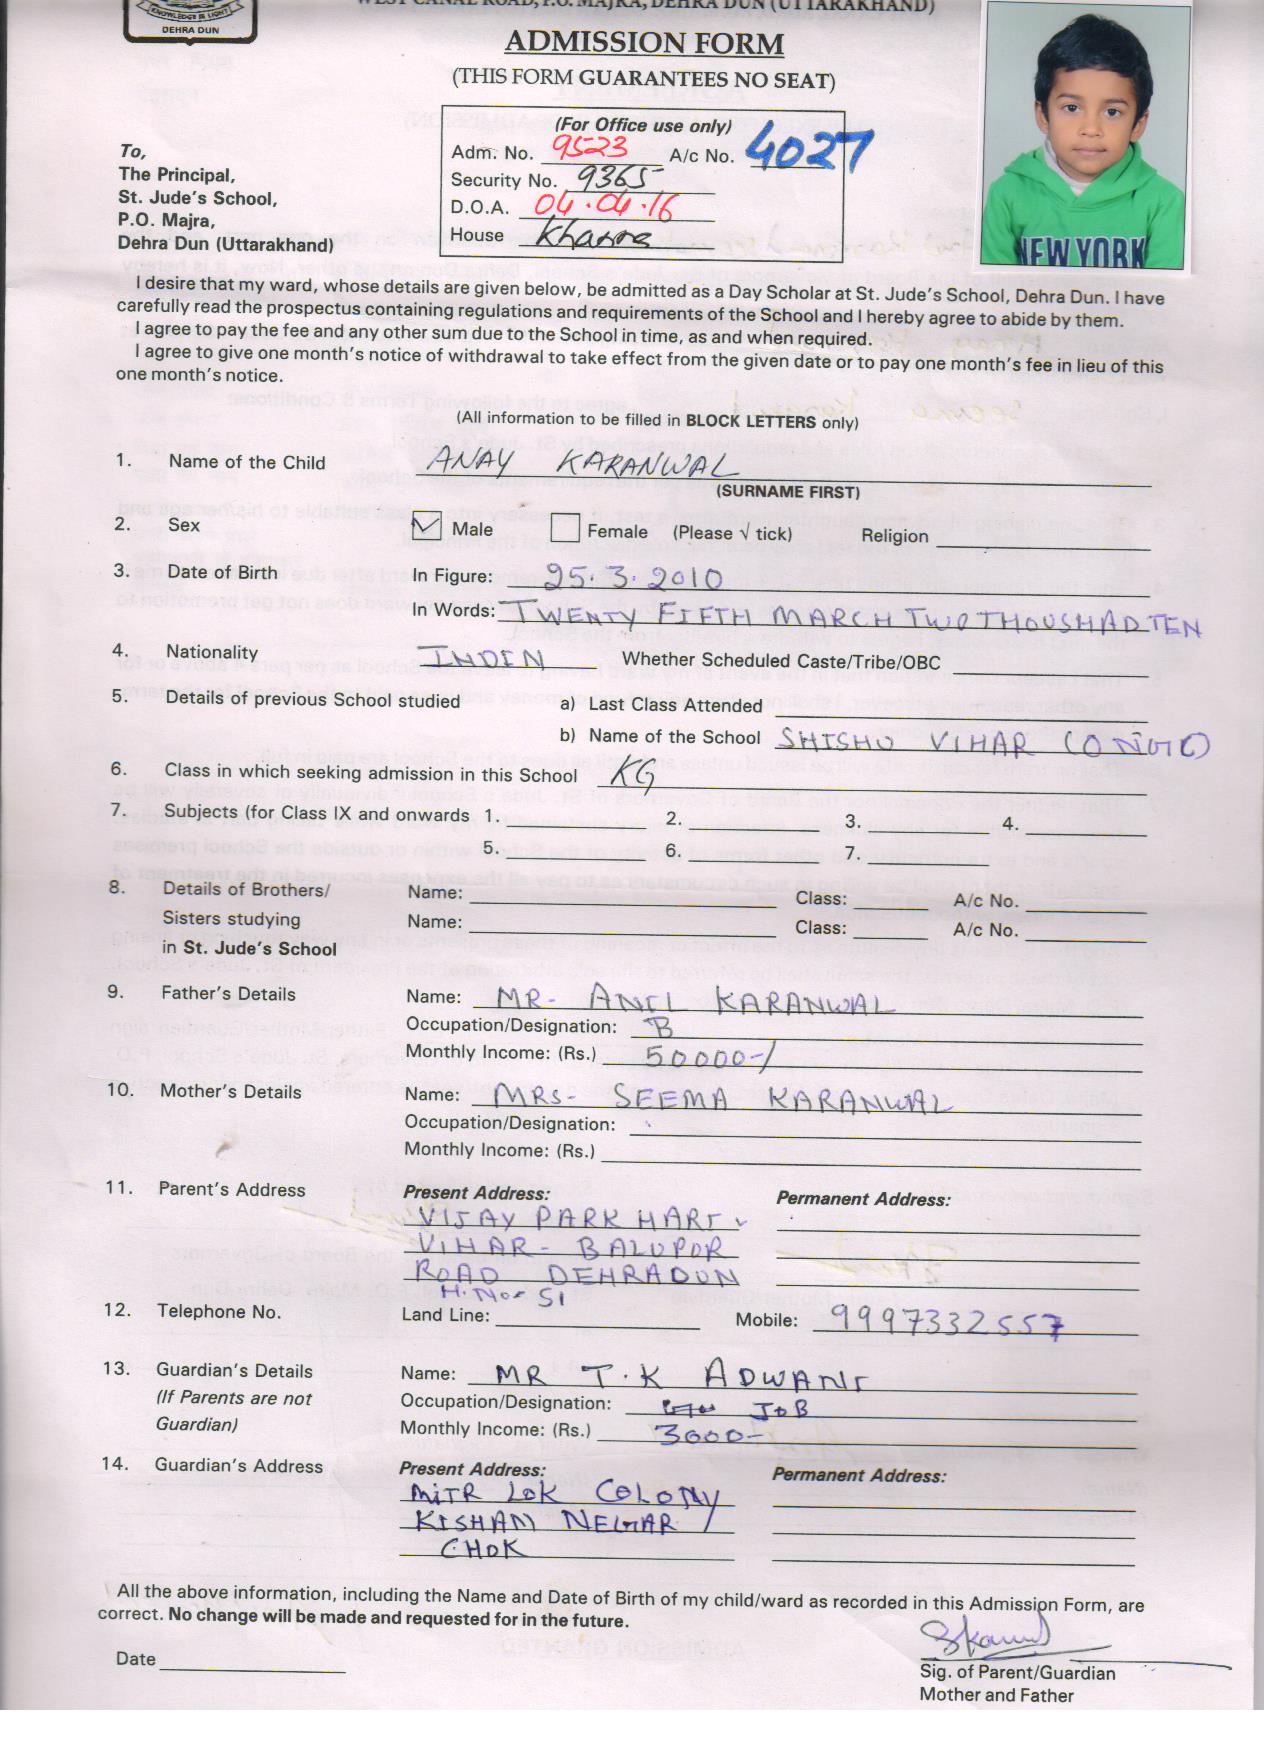 KNOWLEDGE IS LIGHT
DEHRA DUN
WEST CANAL ROAD, P.O. MAJRA, DEHRA DUN (UTTARAKHAND)
ADMISSION FORM
(THIS FORM GUARANTEES NO SEAT)
(For Office use only)
Adm. No. 9523 A/c No. 4027
Security No. 9365
D.O.A. 04.04.16
House
To,
The Principal,
St. Jude's School,
P.O. Majra,
Dehra Dun (Uttarakhand)
NEW YORK
I desire that my ward, whose details are given below, be admitted as a Day Scholar at St. Jude's School, Dehra Dun. I have
carefully read the prospectus containing regulations and requirements of the School and I hereby agree to abide by them.
I agree to pay the fee and any other sum due to the School in time, as and when required.
I agree to give one month's notice of withdrawal to take effect from the given date or to pay one month's fee in lieu of this
one month's notice.
(All information to be filled in BLOCK LETTERS only)
1. Name of the Child ANAY KARANWAL
(SURNAME FIRST)
2. Sex Male Female (Please √ tick) Religion
3. Date of Birth In Figure: 25.3.2010
In Words: TWENTY FIFTH MARCH TWO THOUSHAD TEN
4. Nationality INDIN Whether Scheduled Caste/Tribe/OBC
5. Details of previous School studied a) Last Class Attended
b) Name of the School SHISHU VIHAR (ONGC)
6. Class in which seeking admission in this School KG
7. Subjects (for Class IX and onwards 1. 2. 3. 4.
5. 6. 7.
8. Details of Brothers/ Name: Class: A/c No.
Sisters studying Name: Class: A/c No.
in St. Jude's School
9. Father's Details Name: MR- ANIL KARANWAL
Occupation/Designation: B
Monthly Income: (Rs.) 50000-/
10. Mother's Details Name: MRS- SEEMA KARANWAL
Occupation/Designation:
Monthly Income: (Rs.)
11. Parent's Address Present Address: Permanent Address:
VIJAY PARK HARI
VIHAR - BALUPOR
ROAD DEHRADUN
H.No- 51
12. Telephone No. Land Line: Mobile: 9997332557
13. Guardian's Details Name: MR T.K ADWANI
(If Parents are not Occupation/Designation: JOB
Guardian) Monthly Income: (Rs.) 3000-
14. Guardian's Address Present Address: Permanent Address:
MITR LOK COLONY
KISHAN NEGAR
CHOK
All the above information, including the Name and Date of Birth of my child/ward as recorded in this Admission Form, are
correct. No change will be made and requested for in the future.
Date
Sig. of Parent/Guardian
Mother and Father